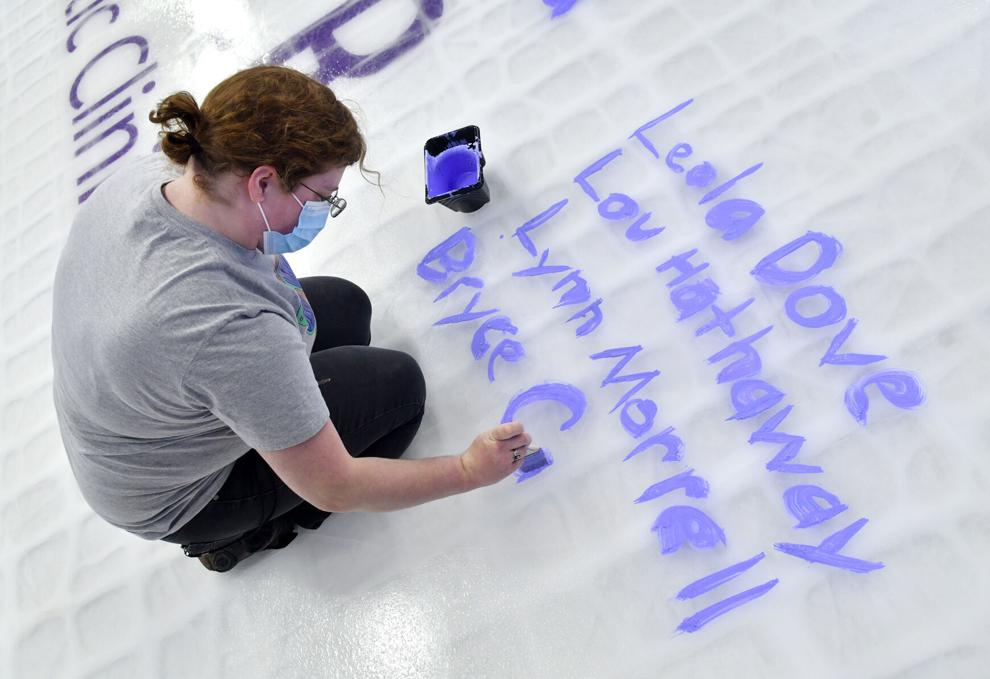 ic Clinic
P
Leola Dove
Lou Hathaway
Lynn Morrell
Bryce C